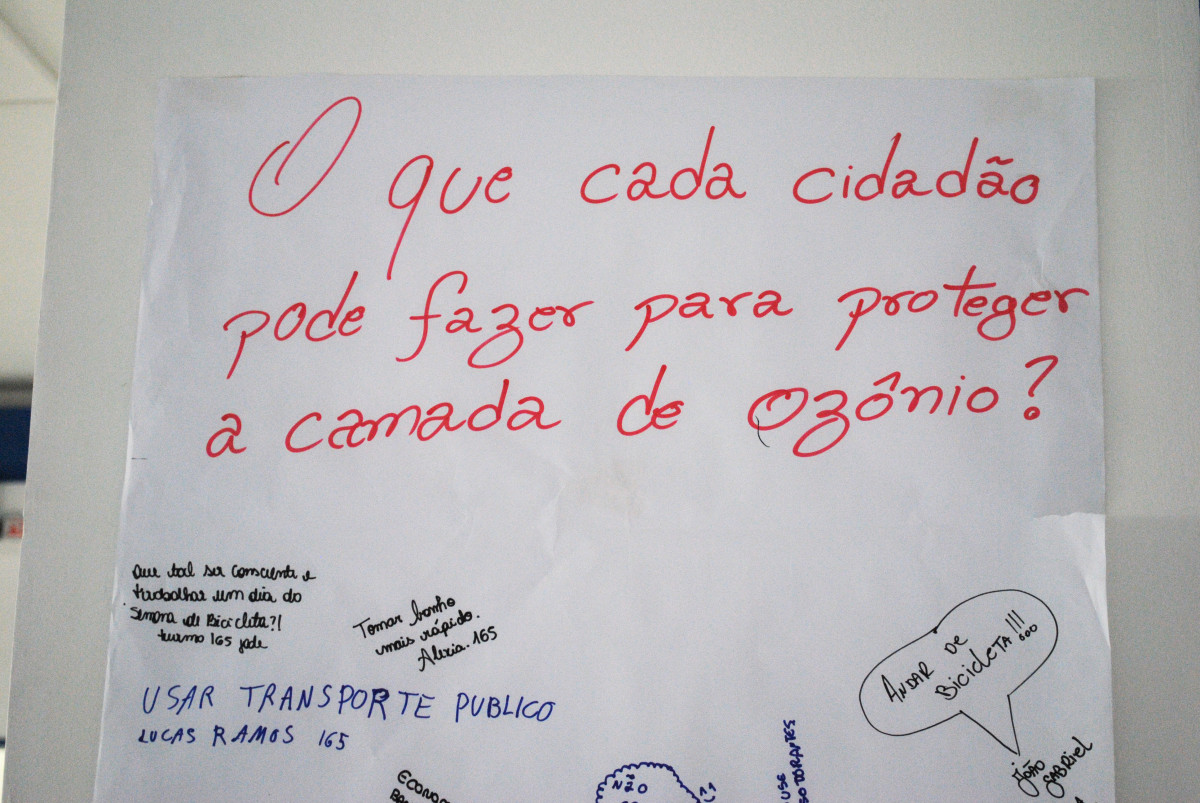 O que cada cidadão
pode fazer para proteger
a camada de ozônio?
Que tal ser consciente e
trabalhar um dia da
semana de Bicicleta?!
turma 165 jade
Tomar banho
mais rápido.
Alexia. 165
USAR TRANSPORTE PUBLICO
LUCAS RAMOS 165
ANDAR DE
BICICLETA!!!...
JOÃO
GABRIEL
NÃO
USE